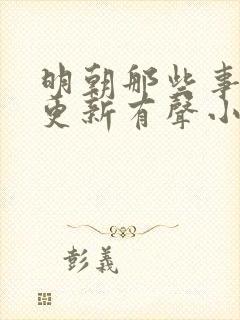 明朝那些事
更新有聲小
彭義